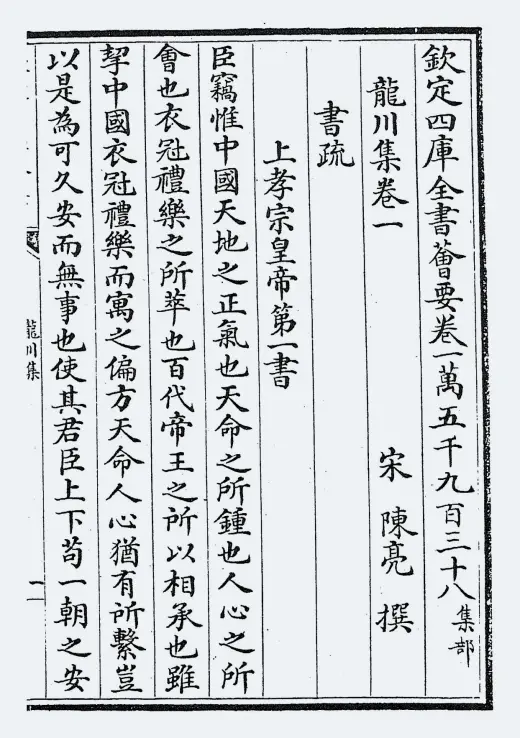 欽定四庫全書薈要卷一萬五千九百三十八 集部
龍川集卷一 宋 陳亮 撰
書疏
上孝宗皇帝第一書
臣竊惟中國天地之正氣也天命之所鍾也人心之所
會也衣冠禮樂之所萃也百代帝王之所以相承也雖
挈中國衣冠禮樂而寓之偏方天命人心猶有所繫豈
以是為可久安而無事也使其君臣上下苟一朝之安
龍川集
一